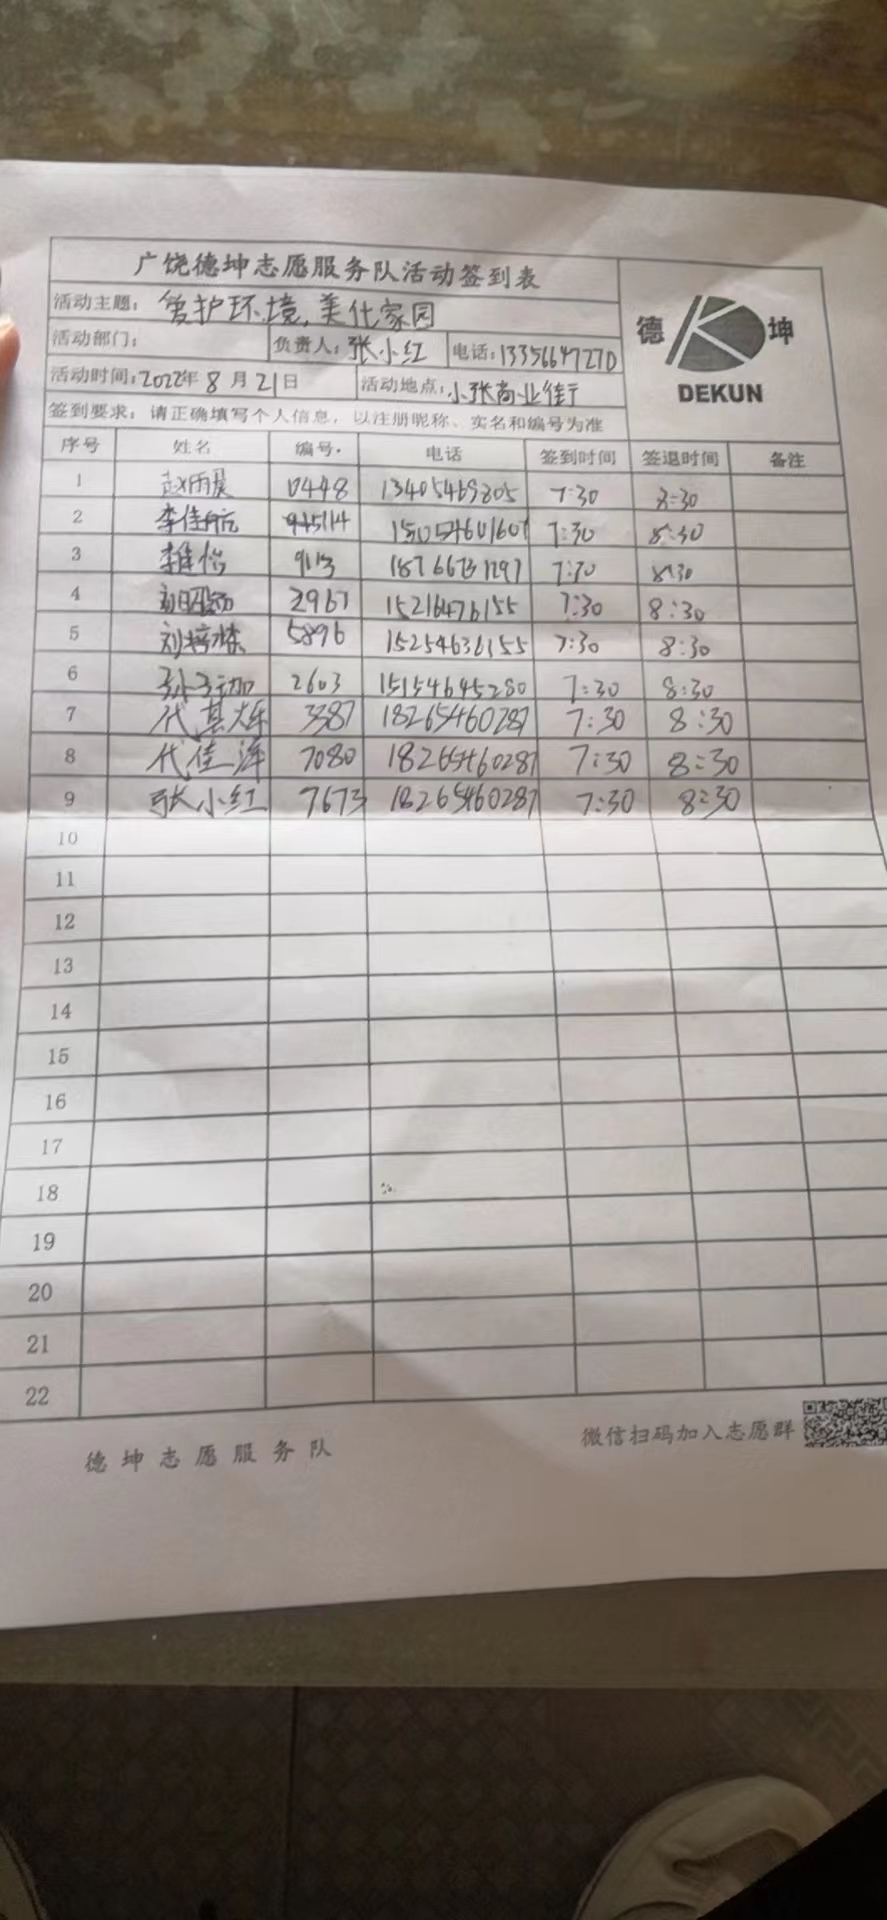 广饶德坤志愿服务队活动签到表
活动主题：管护环境，美化家园
德 坤
DEKUN
活动部门： 负责人：张小红 电话：13356647270
活动时间：2022年8月21日 活动地点：小张商业街
签到要求：请正确填写个人信息，以注册昵称、实名和编号为准
序号 姓名 编号 电话 签到时间 签退时间 备注
1 赵雨晨 0448 13405469805 7:30 8:30
2 李佳航 15054601601 7:30 8:30
3 9113 18766731297 7:30 8:30
4 2967 15216476155 7:30 8:30
5 5896 15254636155 7:30 8:30
6 2603 15154645280 7:30 8:30
7 代其烁 3387 18265460287 7:30 8:30
8 代佳泽 7080 18265460287 7:30 8:30
9 张小红 7673 18265460287 7:30 8:30
10
11
12
13
14
15
16
17
18
19
20
21
22
德坤志愿服务队
微信扫码加入志愿群